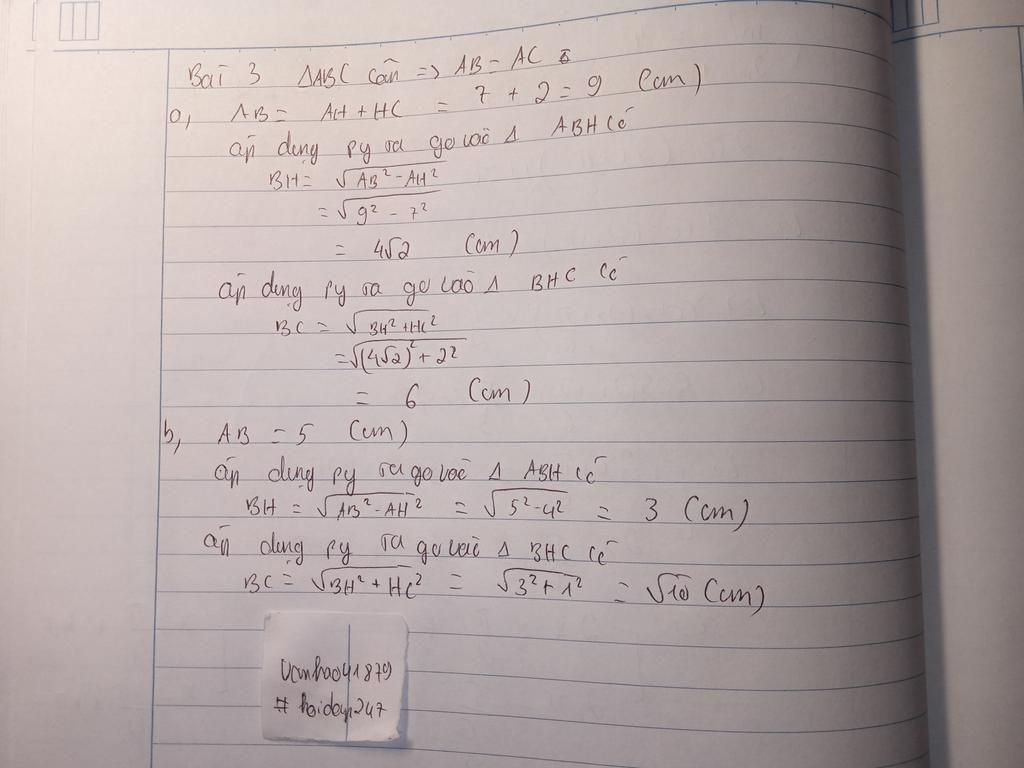 Bài 3 ΔABC cân => AB = AC
a, AB = AH + HC = 7 + 2 = 9 (cm)
áp dụng py ta go vào Δ ABH có
BH = √AB² - AH²
= √9² - 7²
= 4√2 (cm)
áp dụng py ta go vào Δ BHC có
BC = √BH² + HC²
= √(4√2)² + 2²
= 6 (cm)
b, AB = 5 (cm)
áp dụng py ta go vào Δ ABH có
BH = √AB² - AH² = √5² - 4² = 3 (cm)
áp dụng py ta go vào Δ BHC có
BC = √BH² + HC² = √3² + 1² = √10 (cm)
Vanhao41879
# hoidap247